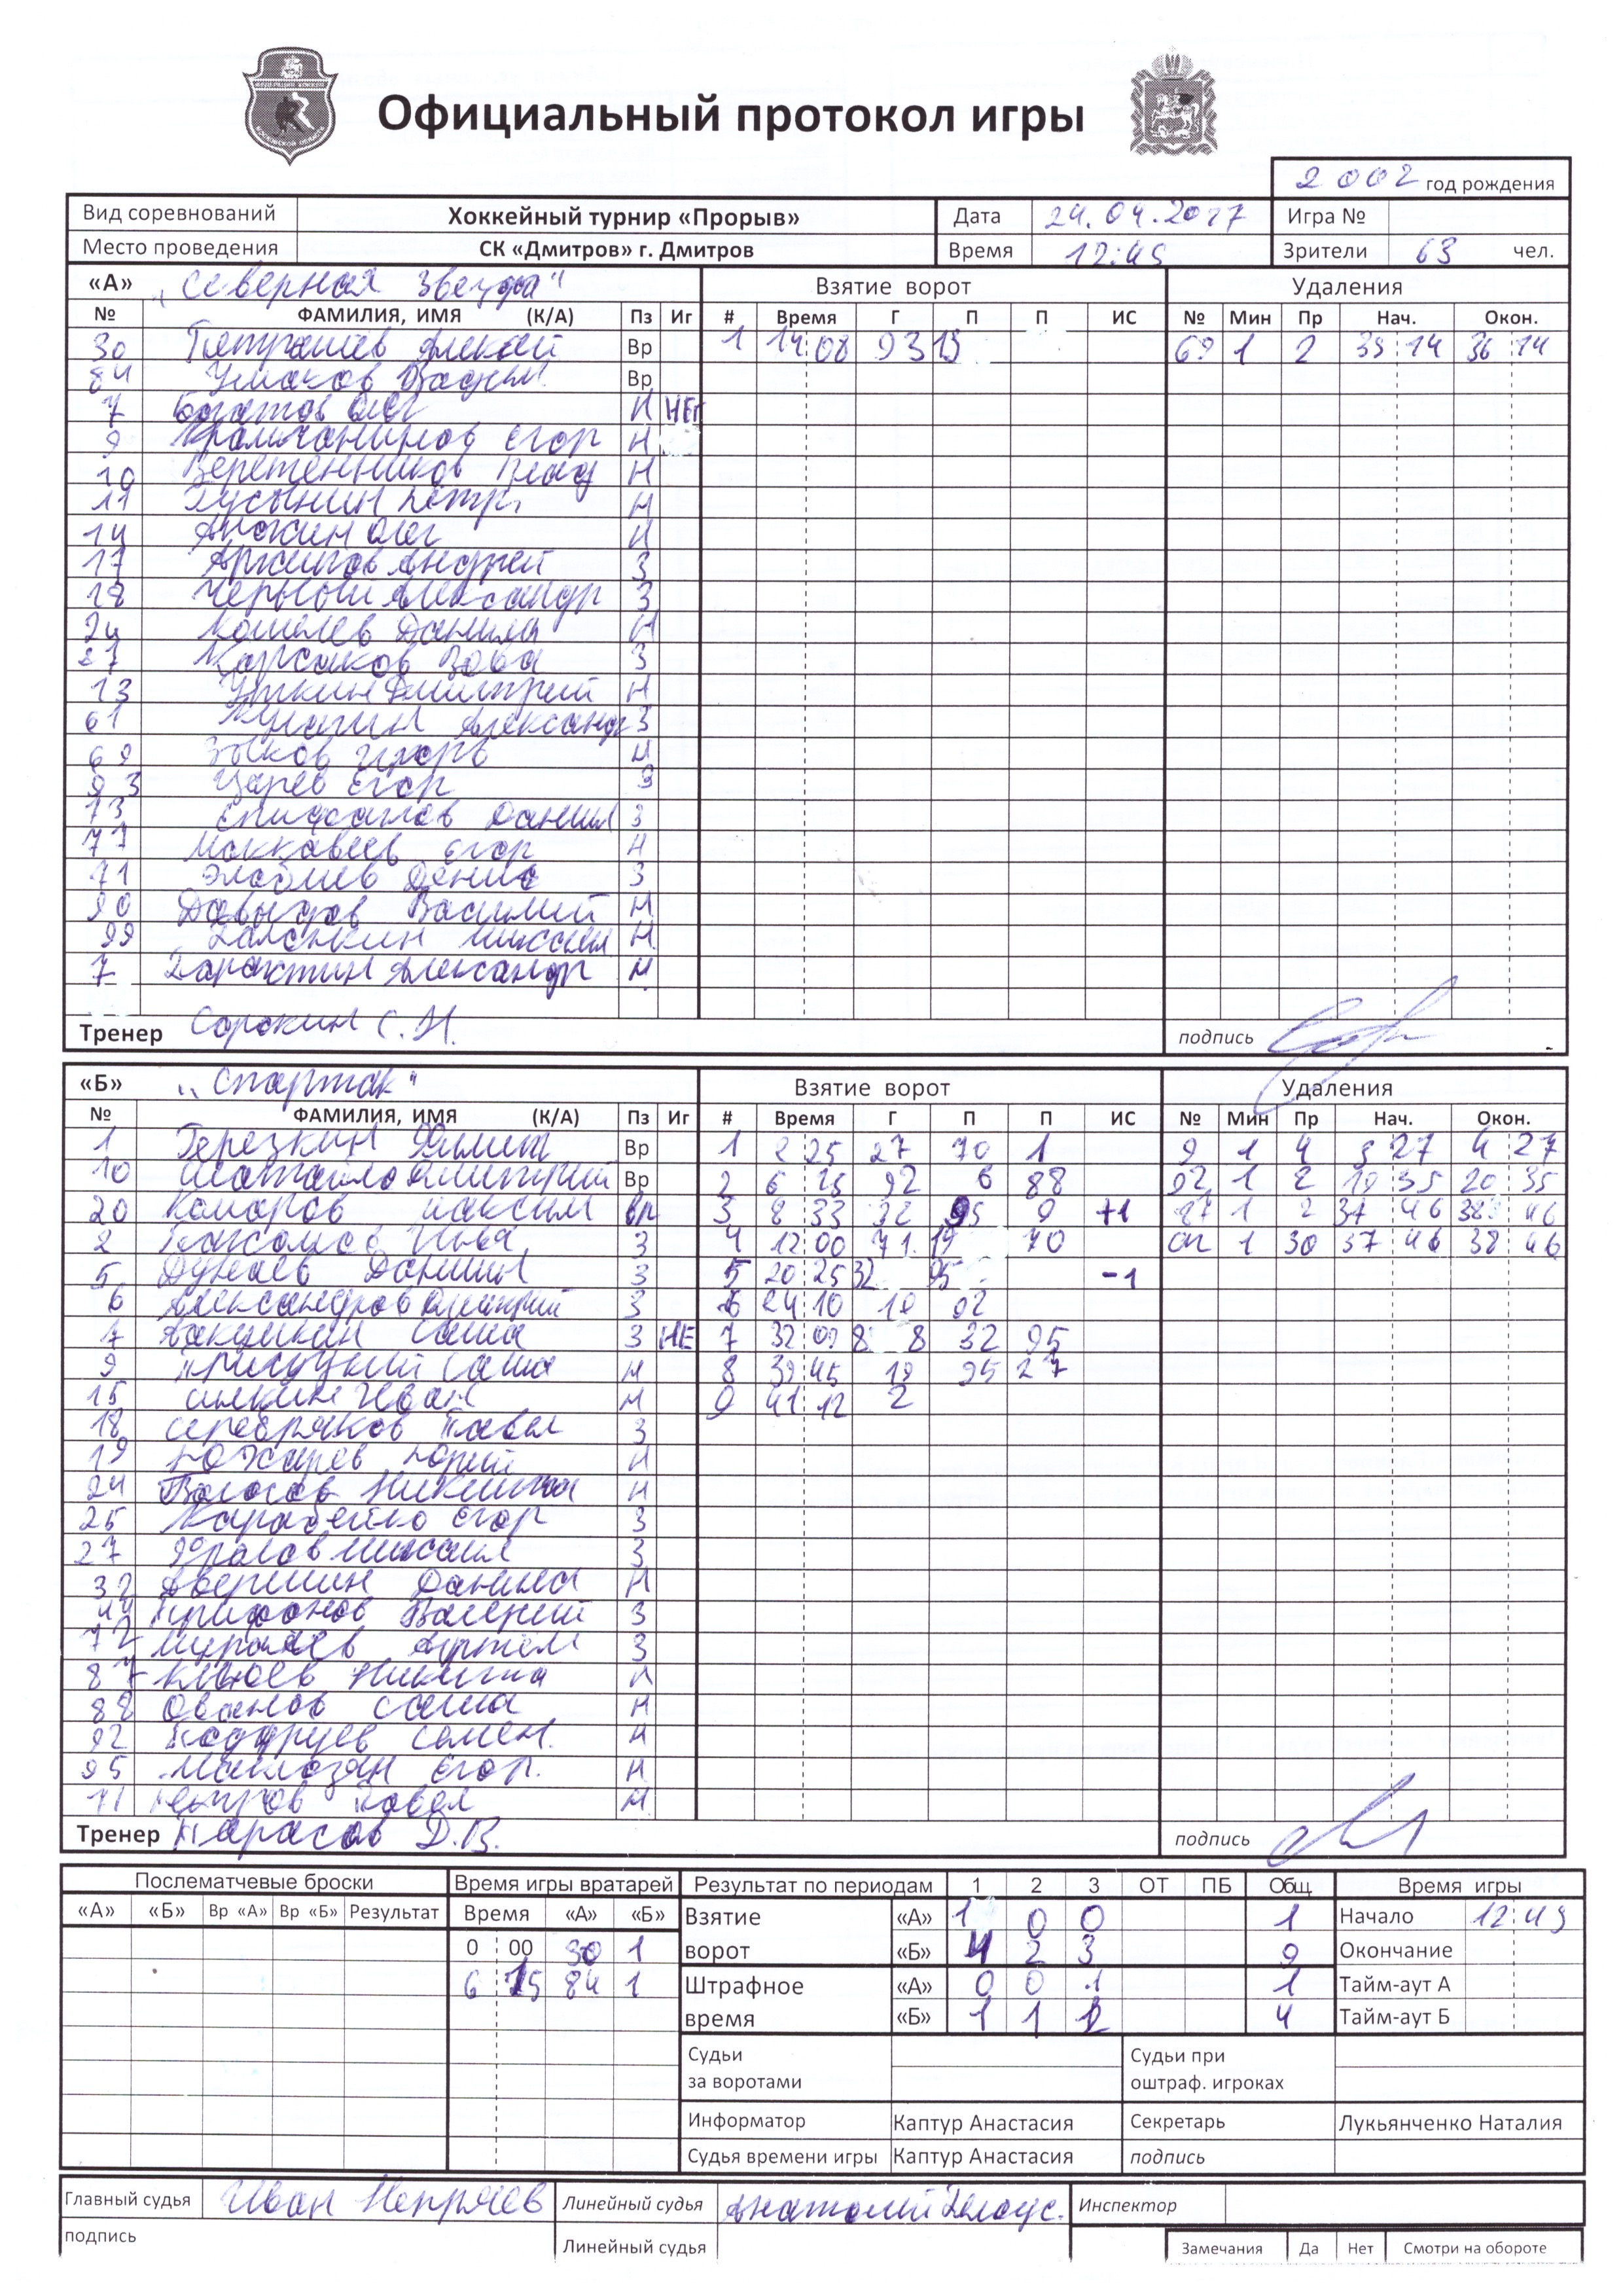 Официальный протокол игры
2002 год рождения
Вид соревнований Хоккейный турнир «Прорыв» Дата 24.04.2017 Игра №
Место проведения СК «Дмитров» г. Дмитров Время 12:45 Зрители 63 чел.
«А» "Северная Звезда" Взятие ворот Удаления
№ ФАМИЛИЯ, ИМЯ (К/А) Пз Иг # Время Г П П ИС № Мин Пр Нач. Окон.
30 Вр 1 14 08 93 15 69 1 2 35 14 36 14
84 Ушаков Вадим Вр
7 Олег Н НЕТ
9 Егор Н
10 Веретенников Влад Н
11 Петр Н
14 Анохин Олег Н
17 Архипов Андрей З
18 Черный Александр З
24 Кошелев Данила Н
27 Карсаков Вова З
13 Уткин Дмитрий Н
61 Александр З
69 Зыков Игорь Н
93 Царев Егор З
73 Епифанов Даниил З
77 Маккавеев Егор Н
71 Денис З
90 Давыдов Василий Н
99 Галочкин Михаил Н
7 Александр Н
Тренер Сорокин С.Н. подпись
«Б» "Спартак" Взятие ворот Удаления
№ ФАМИЛИЯ, ИМЯ (К/А) Пз Иг # Время Г П П ИС № Мин Пр Нач. Окон.
1 Герезкин Филипп Вр 1 2 25 27 70 1 9 1 4 3 27 4 27
10 Дмитрий Вр 2 6 15 92 6 88 92 1 2 19 35 20 35
20 Комаров Максим Вр 3 8 33 32 95 9 +1 87 1 2 37 46 38 46
2 З 4 12 00 71 19 70 1 30 37 46 38 46
5 Дунаев Даниил З 5 20 25 32 95 -1
6 Александров Дмитрий З 6 24 10 19 92
7 Бакушкин Саша З НЕ 7 32 09 88 32 95
9 Саша Н 8 39 45 19 95 27
15 Иван Н 9 41 12 2
18 Серебряков Павел З
19 Юрий Н
24 Волосов Никита Н
25 Карабейко Егор З
27 Фралов Михаил З
32 Авершин Данила Н
44 Трифонов Валерий З
72 Муратов Артем З
87 Клюев Никита Н
88 Ованов Саша Н
92 Семен. Н
95 Егор. Н
71 Петров Павел Н
Тренер Тарасов Д.В. подпись
Послематчевые броски Время игры вратарей Результат по периодам 1 2 3 ОТ ПБ Общ. Время игры
«А» «Б» Вр «А» Вр «Б» Результат Время «А» «Б» Взятие «А» 1 0 0 1 Начало 12 49
0 00 30 1 ворот «Б» 4 2 3 9 Окончание
6 15 84 1 Штрафное «А» 0 0 1 1 Тайм-аут А
время «Б» 1 1 2 4 Тайм-аут Б
Судьи Судьи при
за воротами оштраф. игроках
Информатор Каптур Анастасия Секретарь Лукьянченко Наталия
Судья времени игры Каптур Анастасия подпись
Главный судья Иван Непряев Линейный судья Анатолий Белоус. Инспектор
подпись Линейный судья Замечания Да Нет Смотри на обороте